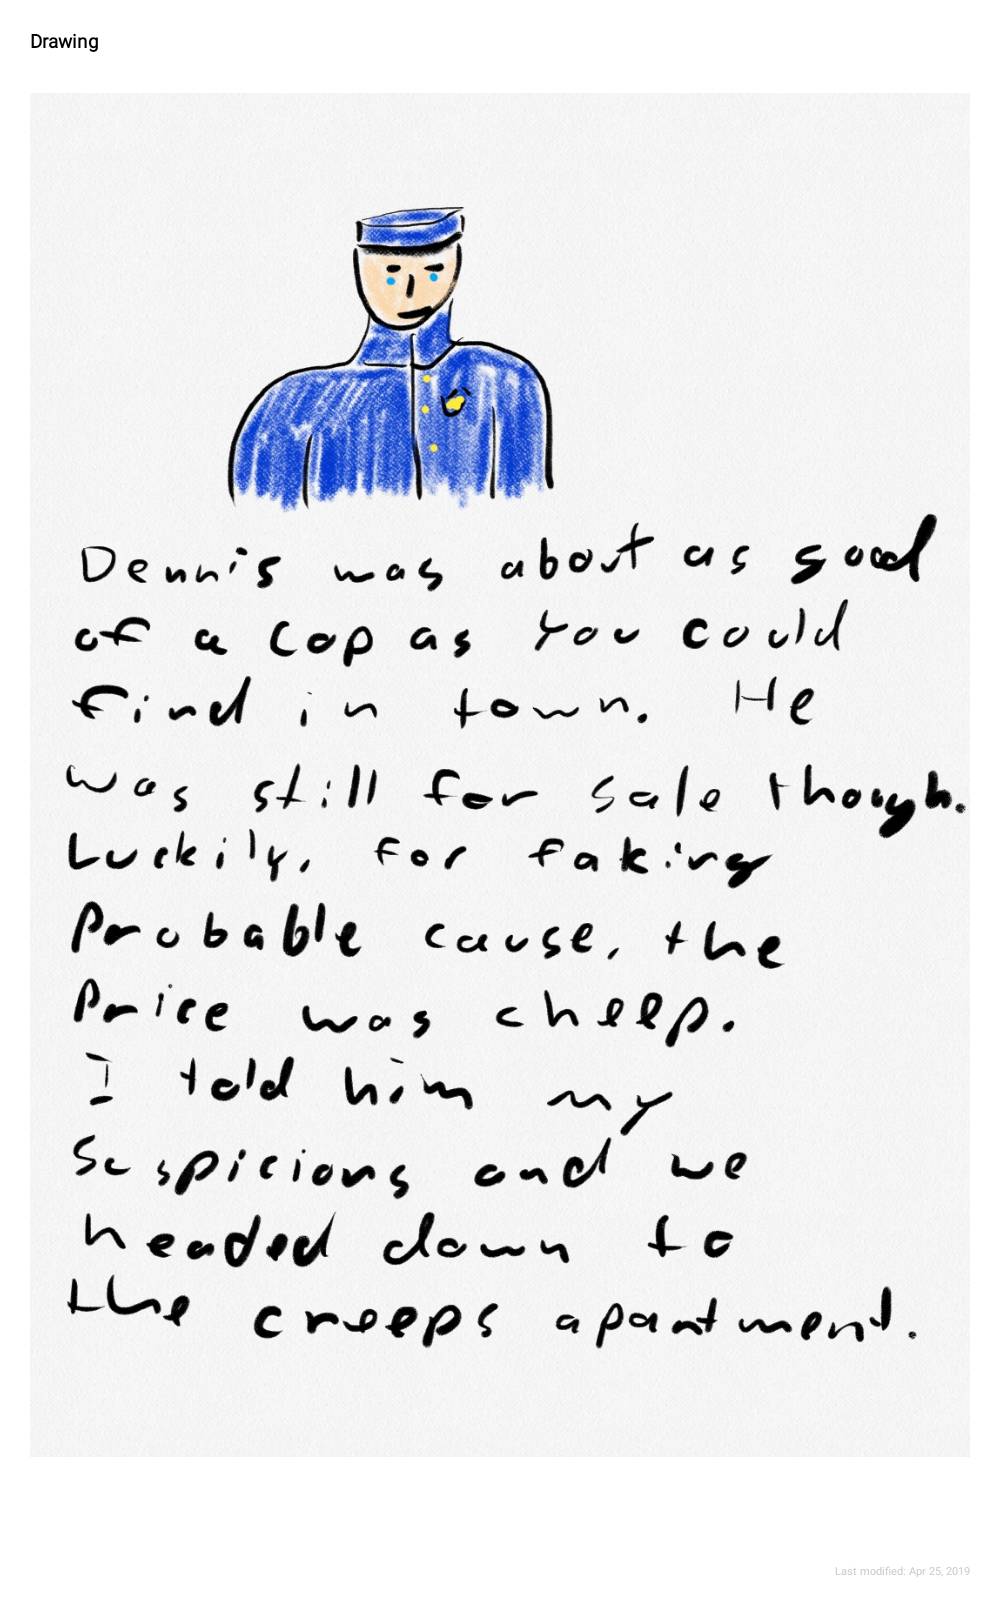 Drawing
Dennis was about as good
of a cop as you could
find in town. He
was still for sale though.
Luckily, for faking
probable cause, the
price was cheep.
I told him my
suspicions and we
headed down to
the creeps apartment.
Last modified: Apr 25, 2019